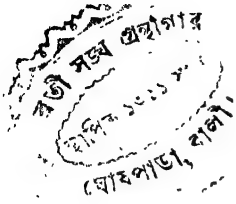 ব্রতী সঙ্ঘ গ্রন্থাগার
স্থাপিত
ঘোষপাড়া, বালী।